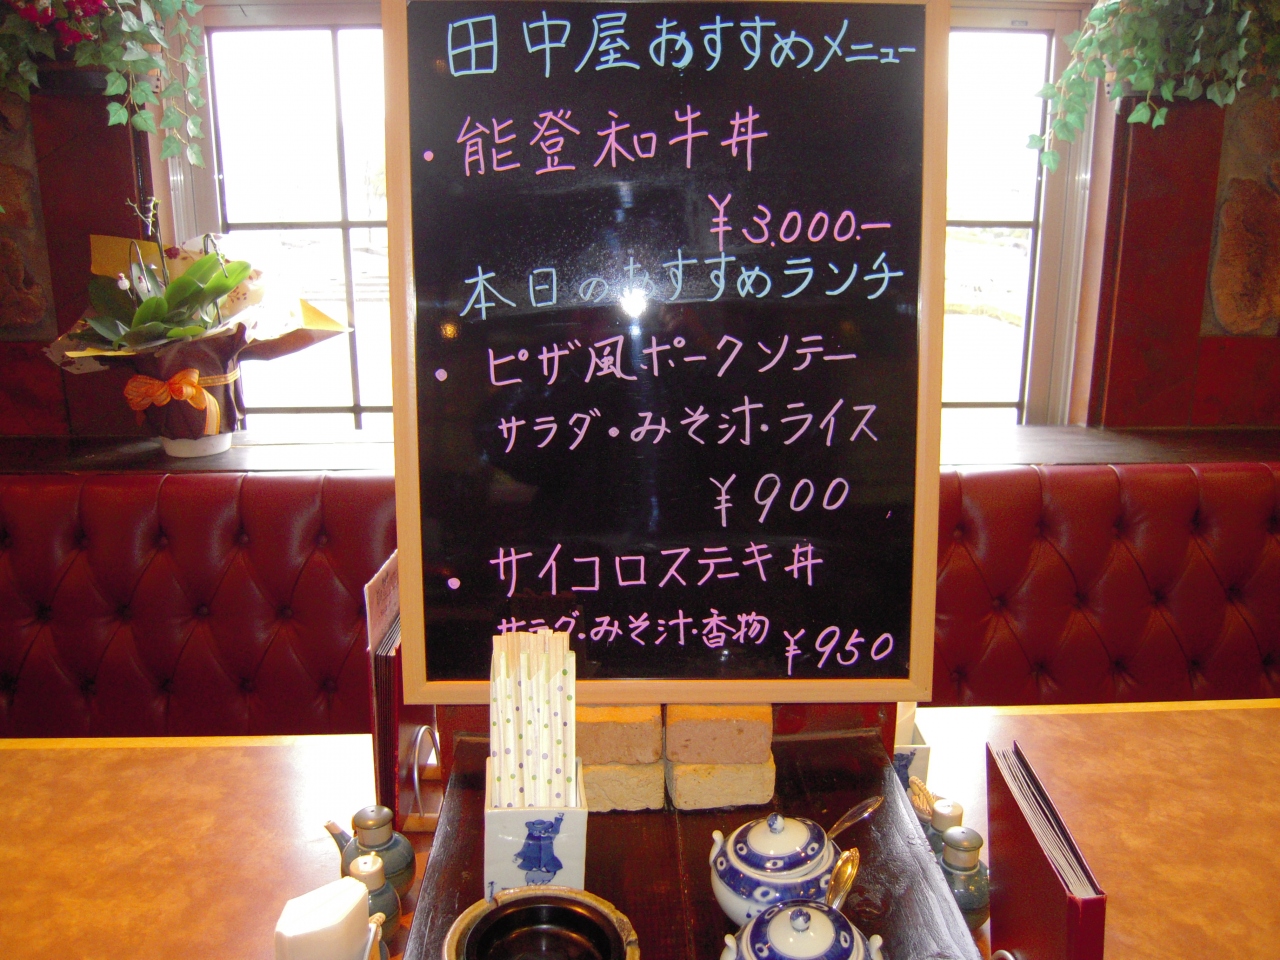 田中屋おすすめメニュー
・能登和牛丼
¥3,000.-
本日のおすすめランチ
・ピザ風ポークソテー
サラダ・みそ汁・ライス
¥900
・サイコロステーキ丼
サラダ・みそ汁・香物 ¥950